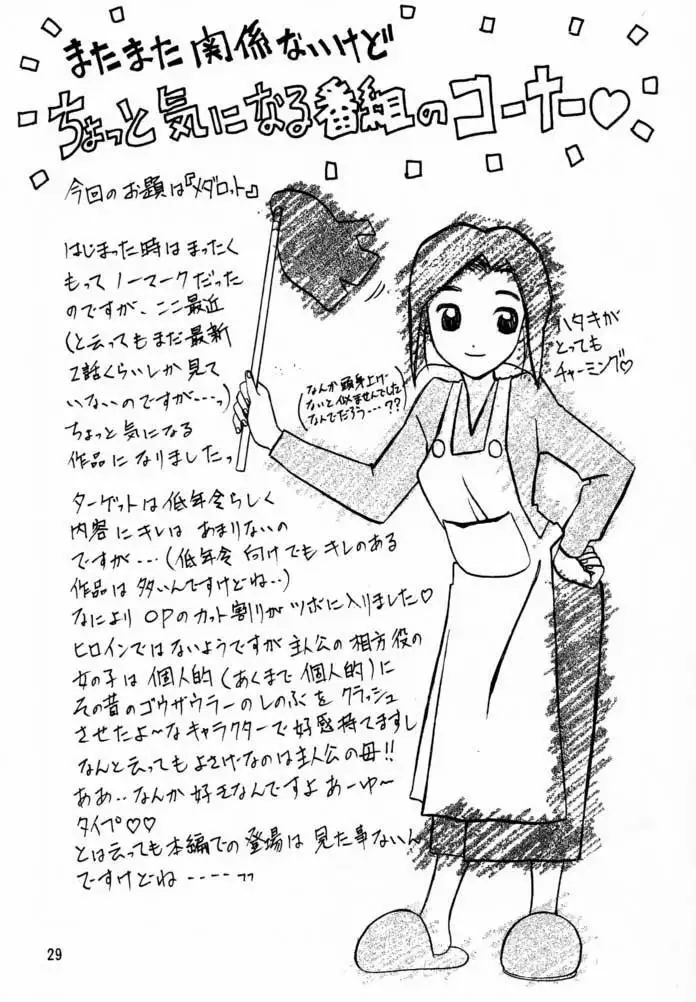 またまた関係ないけど
ちょっと気になる番組のコーナー♡
今回のお題は『メダロット』
はじまった時はまったく
もってノーマークだった
のですが、ここ最近
(と云ってもまだ最新
2話くらいしか見て
いないのですが…っ)
ちょっと気になる
作品になりましたっ
ターゲットは低年令らしく
内容にキレはあまりないの
ですが…(低年令向けでもキレのある
作品は多いんですけどね..)
なにより OPのカット割りがツボに入りました♡
ヒロインではないようですが主人公の相方役の
女の子は個人的(あくまで個人的)に
その昔のゴウザウラーのしのぶをクラッシュ
させたよ〜なキャラクターで好感持てますし
なんと云ってもよさげなのは主人公の母!!
ああ..なんか好きなんですよあーゆ〜
タイプ♡♡
とは云っても本編での登場は見た事ないん
ですけどね----
(なんか頭身上げ
ないと似ませんでした
なんでだろう…??)
ハタキが
とっても
チャーミング♡
29